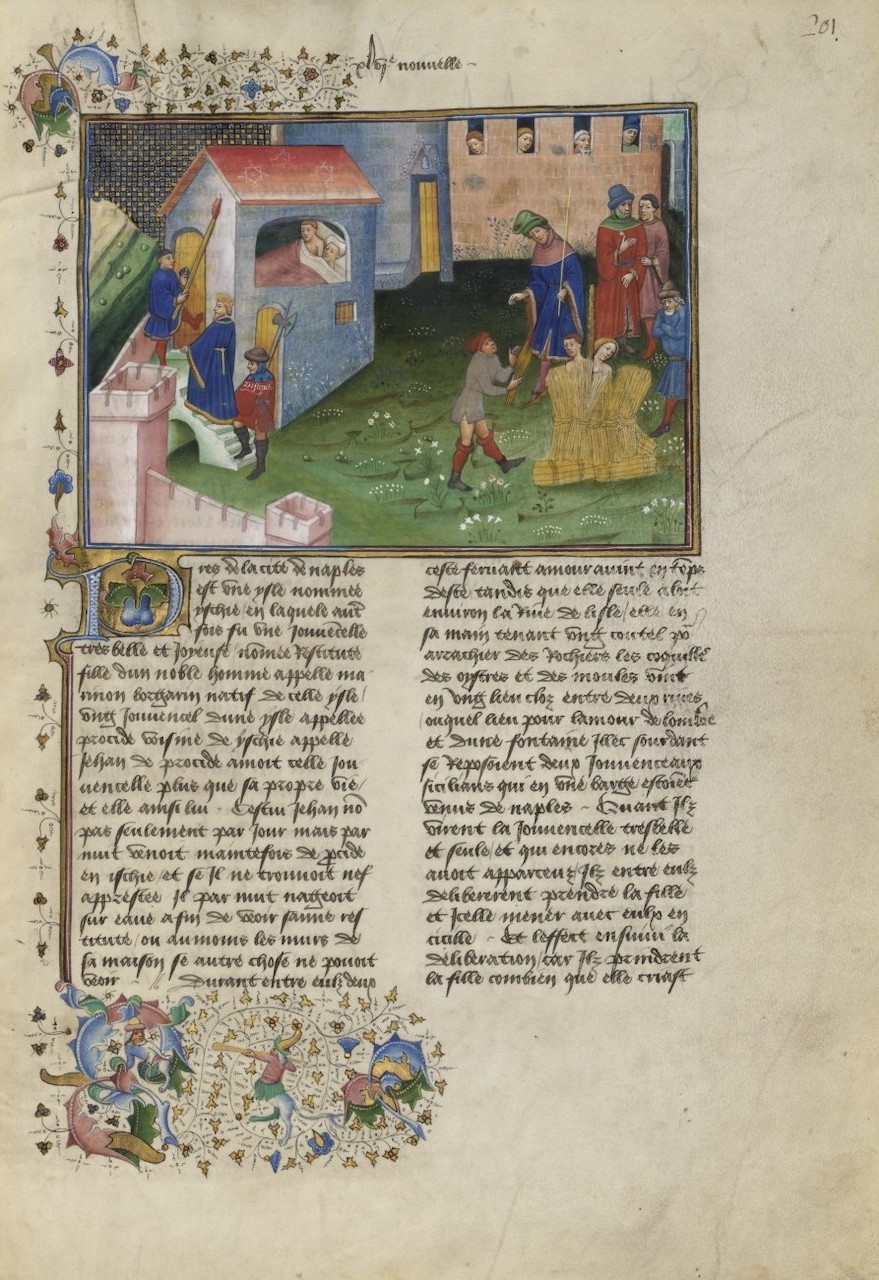 201
nouuelle
Pres de la cite de naples
est vne ysle nommee
yschie en laquele aut
fois fu vne Jouuencelle
tresbelle et Joyeuse nomee Restitute
fille dun noble homme appelle ma
rinon bolgarin natif de celle ysle /
vng Jouuencel dune ysle appellee
procide voisine de yschie appelle
Jehan de procide amoit celle Jou
uencelle plus que sa propre vie /
et elle ainsi lui - Cestui Jehan no
pas seulement par Jour mais par
nuit venoit maintefois de pcide
en ischie / et se Il ne trouuoit nef
apprestee Il par nuit nageoit
sur eaue afin de veoir sanue res
titute / ou au moins les murs de
sa maison se autre chose ne pouoit
veoir - Durant entre eulz deux
ceste feruant amour auint en teps
deste tandis que elle seule aloit
enuiron la Riue de lisle / elle en
sa main tenant vng coutel po
arrachier des Rochiers les coquilles
des oystres et des moules vint
en vng lieu cloz entre deux riues
ouquel lieu pour lamour de lombre
et dune fontaine Illec sourdant
se Reposoient deux Jouuenceaux
sicilians qui en vne barge estoiet
venus de naples - Quant Ilz
virent la Jouuencelle tresbelle
et seule / et qui encores ne les
auoit apparceuz / Ilz entre eulz
delibererent prendre la fille
et Icelle mener auec eulx en
cicille - Et leffect ensuiui la
deliberation / car Ilz prindrent
la fille combien que elle criast